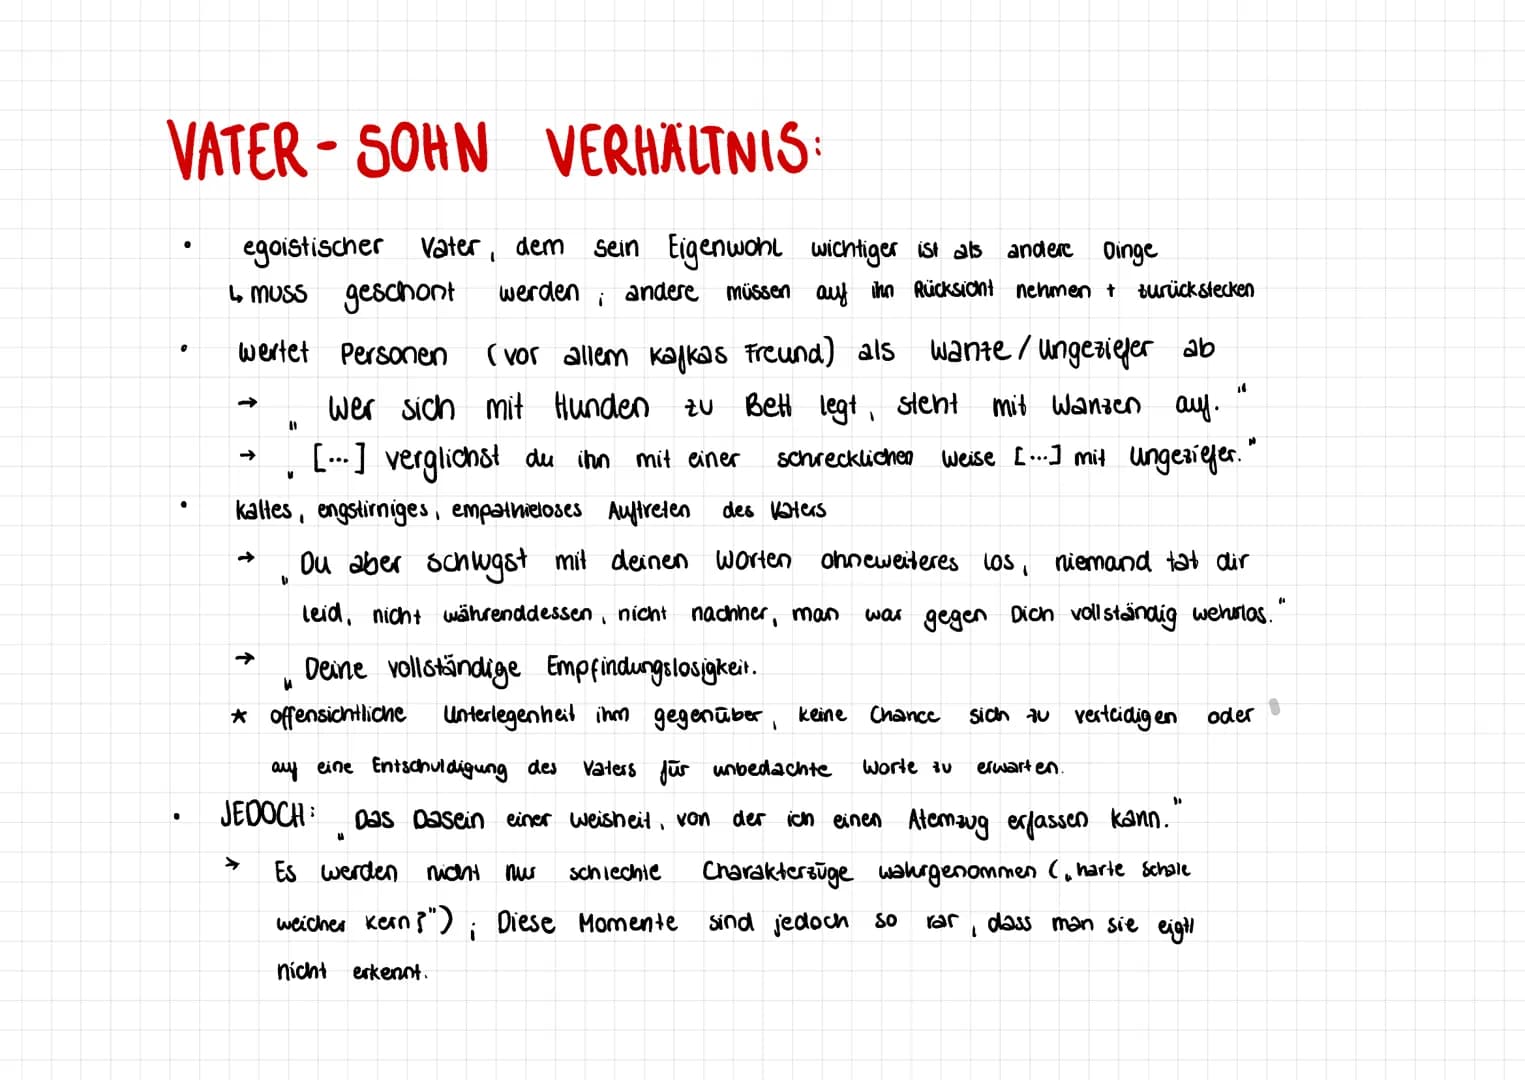 VATER - SOHN VERHÄLTNIS:
• egoistischer Vater, dem sein Eigenwohl wichtiger ist als andere Dinge
↳ muss geschont werden; andere müssen auf ihn Rücksicht nehmen + zurückstecken
• wertet Personen (vor allem Kafkas Freund) als Wanze/Ungeziefer ab
→ „Wer sich mit Hunden zu Bett legt, steht mit Wanzen auf."
→ „[...] verglichst du ihn mit einer schrecklichen Weise [...] mit Ungeziefer."
• kaltes, engstirniges, empathieloses Auftreten des Vaters
→ „Du aber schlugst mit deinen Worten ohneweiteres los, niemand tat dir
leid, nicht währenddessen, nicht nachher, man war gegen Dich vollständig wehrlos."
→ „Deine vollständige Empfindungslosigkeit.
* offensichtliche Unterlegenheit ihm gegenüber, keine Chance sich zu verteidigen oder
auf eine Entschuldigung des Vaters für unbedachte Worte zu erwarten.
• JEDOCH: „Das Dasein einer Weisheit, von der ich einen Atemzug erfassen kann."
→ Es werden nicht nur schlechte Charakterzüge wahrgenommen („harte Schale
weicher Kern?"); Diese Momente sind jedoch so rar, dass man sie eigtl
nicht erkennt.